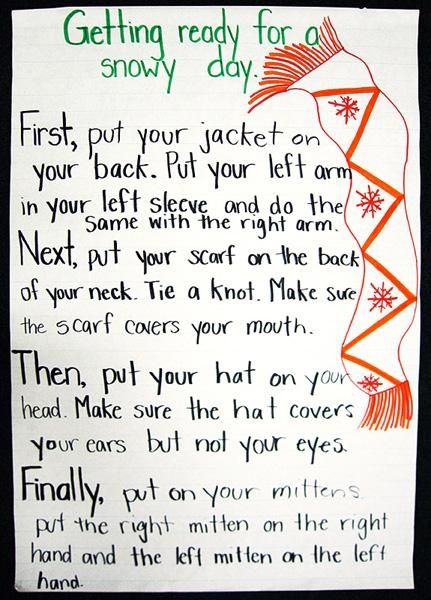 Getting ready for a
snowy day.
First, put your jacket on
your back. Put your left arm
in your left sleeve and do the
same with the right arm.
Next, put your scarf on the back
of your neck. Tie a knot. Make sure
the scarf covers your mouth.
Then, put your hat on your
head. Make sure the hat covers
your ears but not your eyes.
Finally, put on your mittens
put the right mitten on the right
hand and the left mitten on the left
hand.